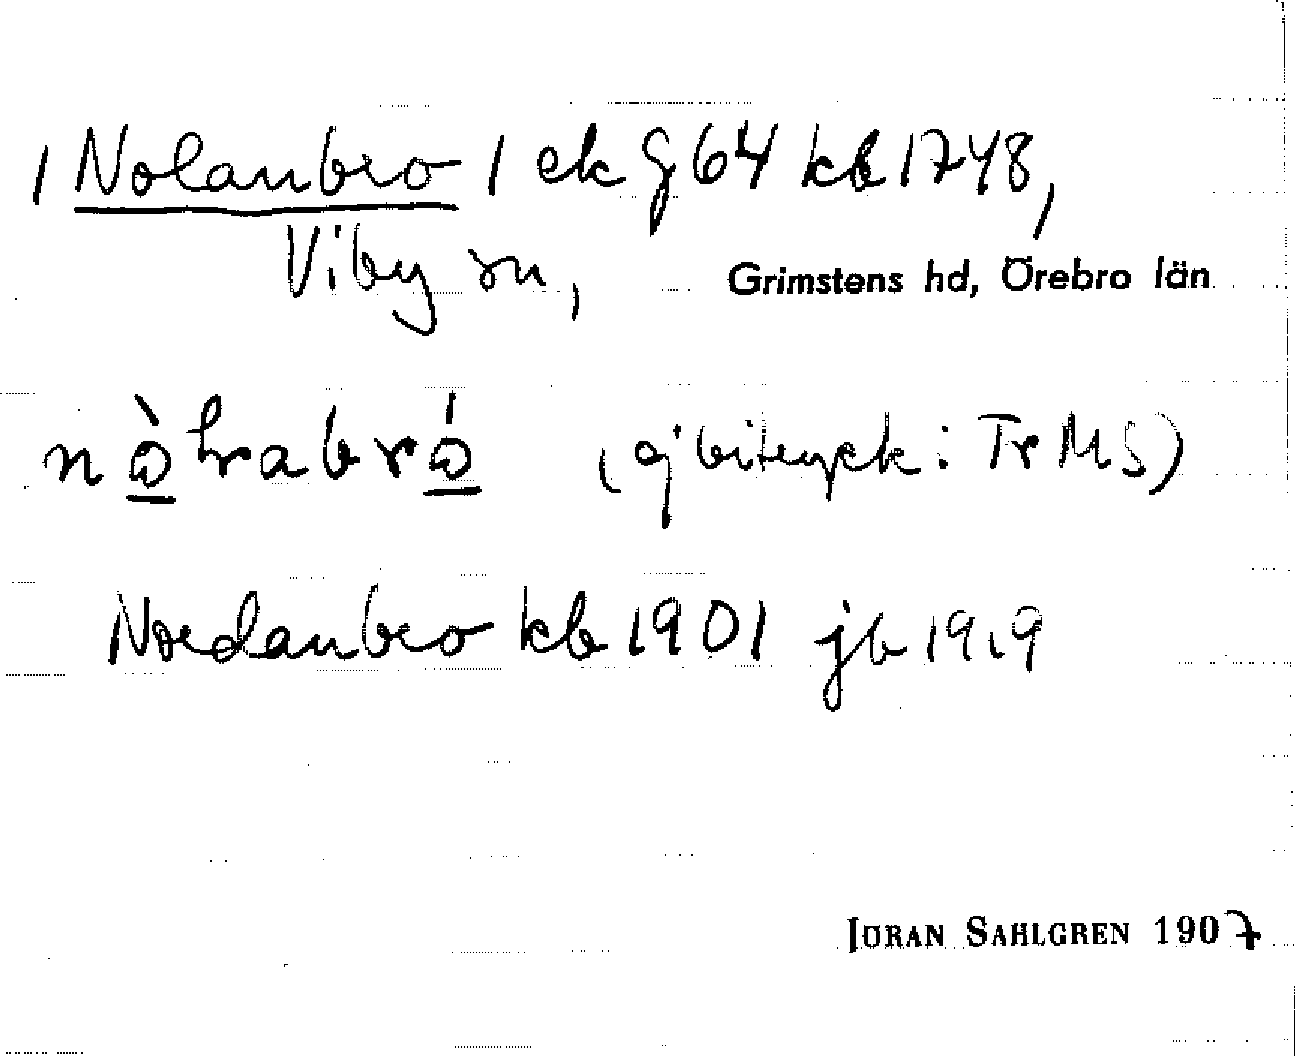 / Nolanbro / ek G 64 kb 1748,
Viby sn, Grimstens hd, Örebro län
(ej bitryck: Tr MS)
Nordanbro kb 1901 jb 1919
JÖRAN SAHLGREN 1907